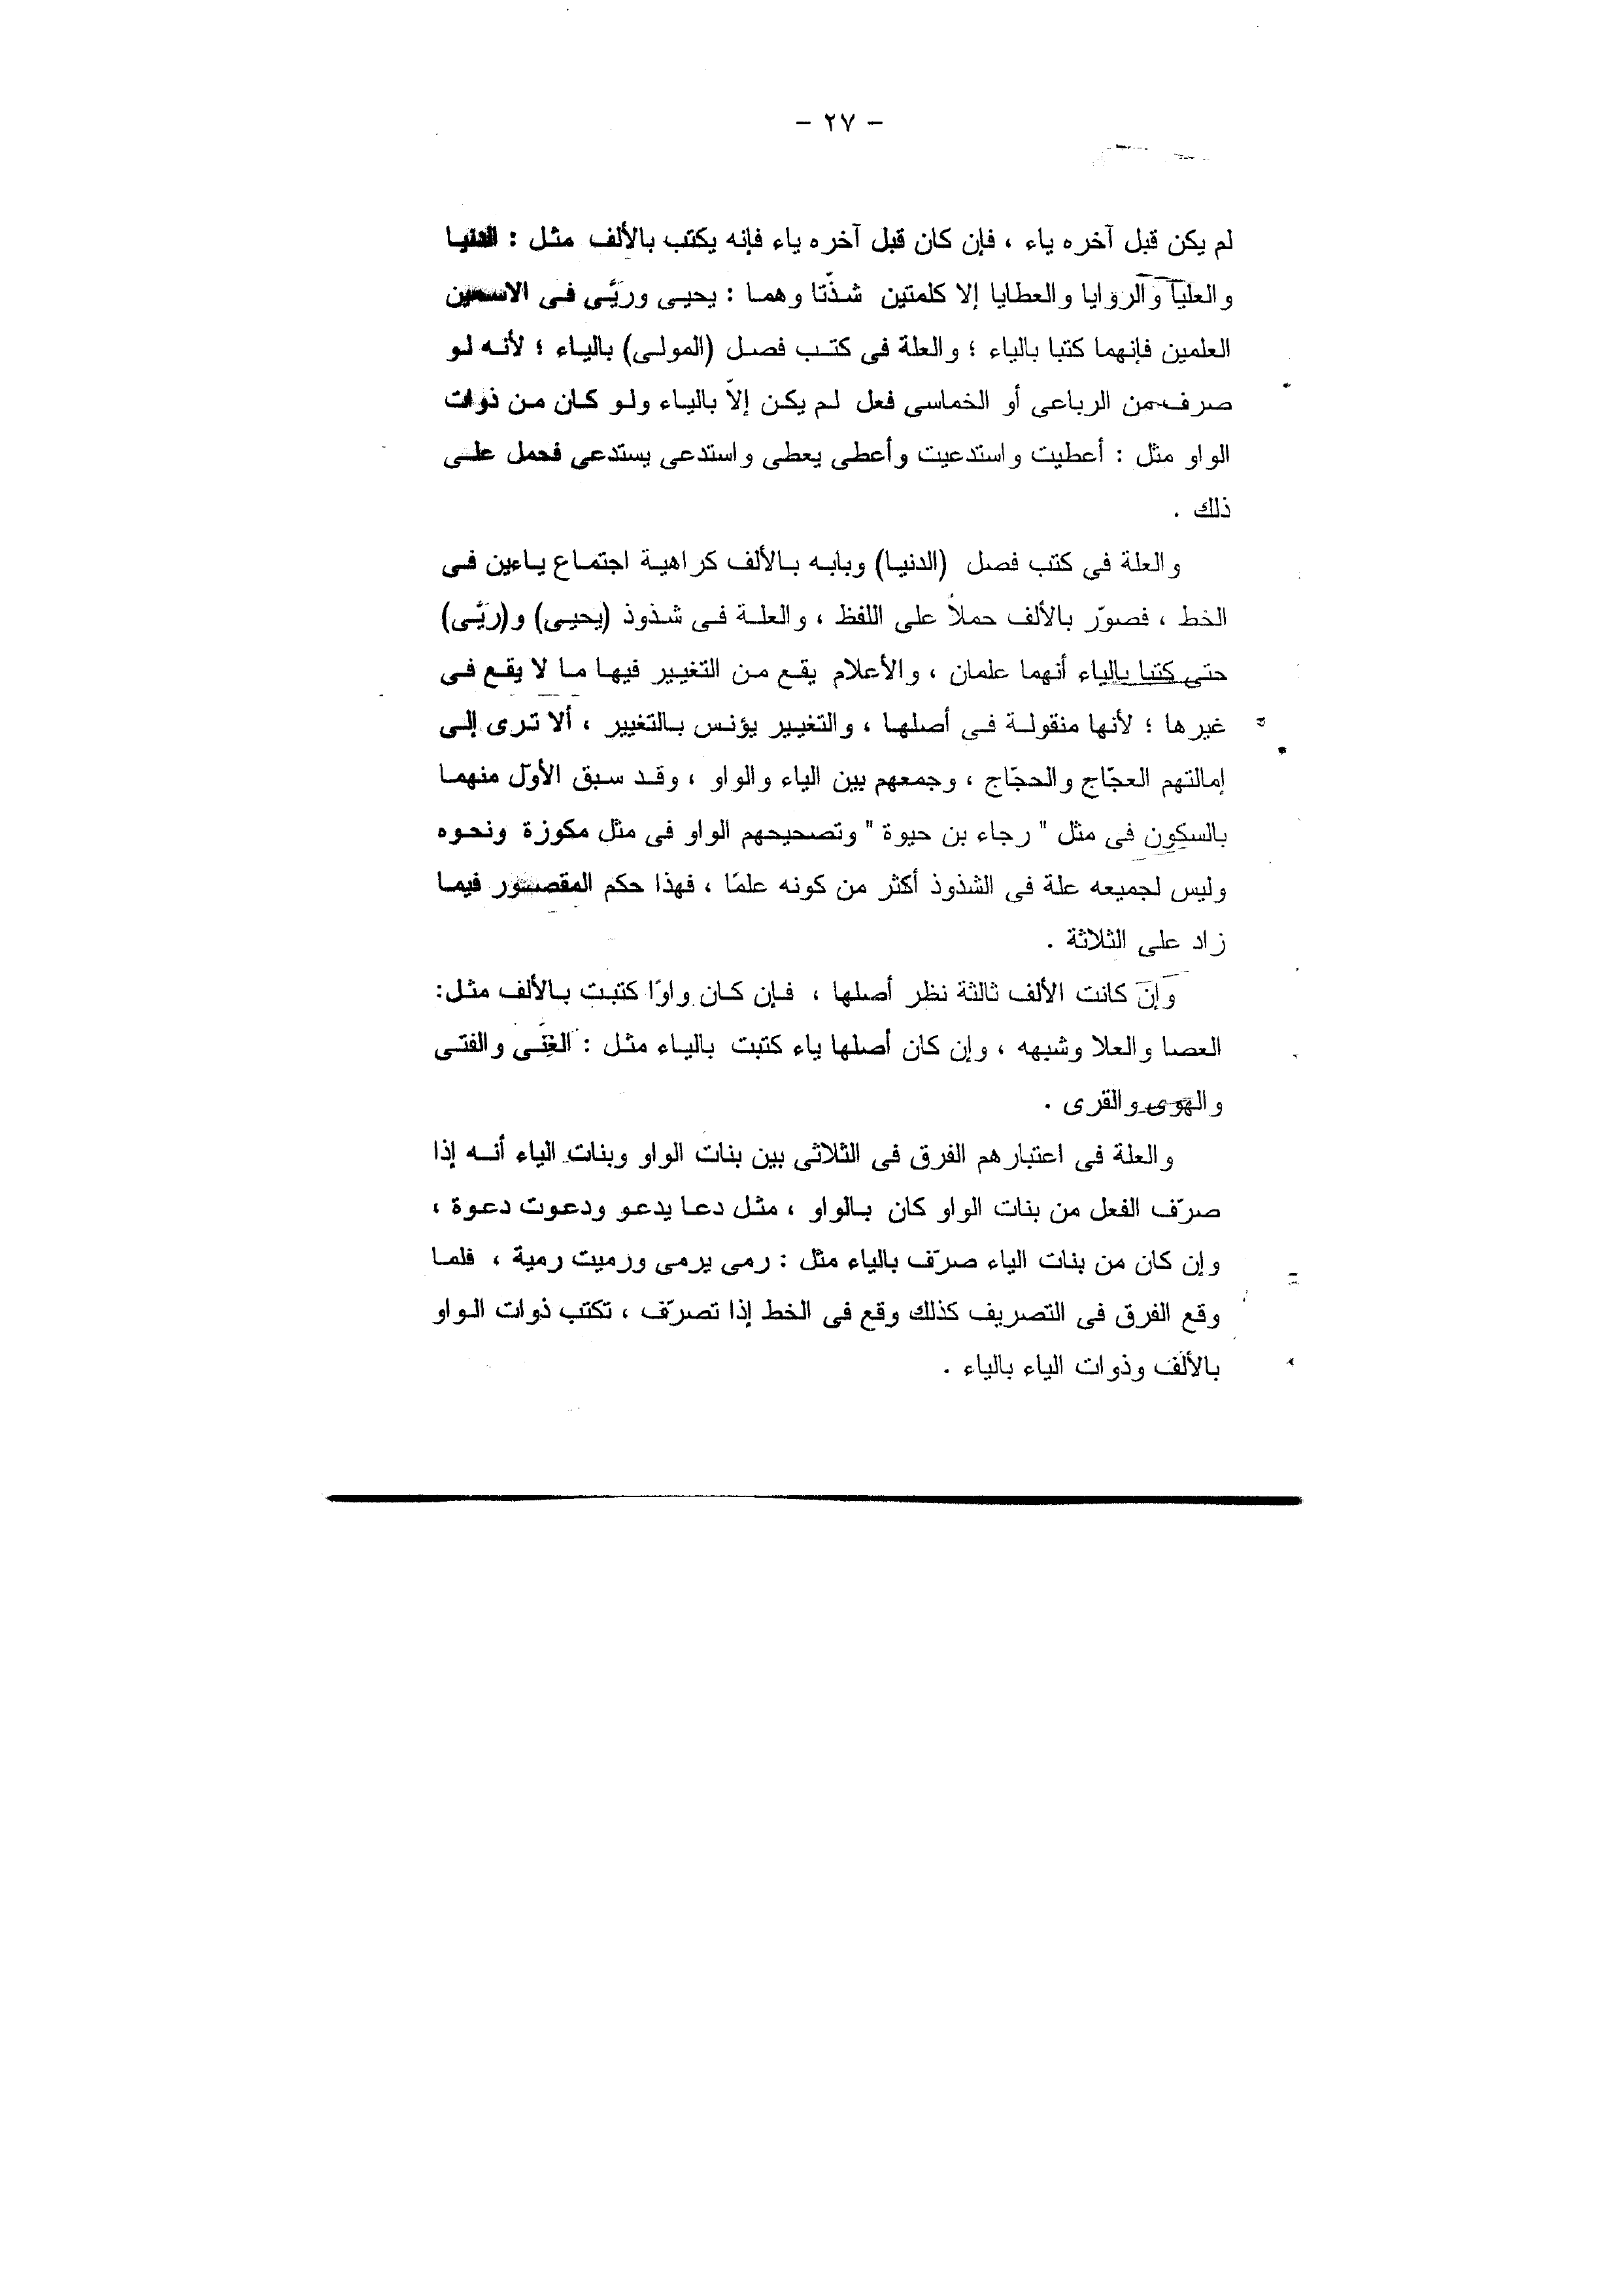 - ٢٧ -
لم يكن قبل آخره ياء ، فإن كان قبل آخره ياء فإنه يكتب بالألف مثل : الدنيا
والعليا والروايا والعطايا إلا كلمتين شذّتا وهما : يحيى وريَّى فى الاسمين
العلمين فإنهما كتبا بالياء ؛ والعلة فى كتب فصل (المولى) بالياء ؛ لأنه لو
صرف من الرباعى أو الخماسى فعل لم يكن إلاّ بالياء ولو كان من ذوات
الواو مثل : أعطيت واستدعيت وأعطى يعطى واستدعى يستدعى فحمل على
ذلك .
والعلة فى كتب فصل (الدنيا) وبابه بالألف كراهية اجتماع ياءين فى
الخط ، فصوّر بالألف حملاً على اللفظ ، والعلة فى شذوذ (يحيى) و(ريَّى)
حتى كتبا بالياء أنهما علمان ، والأعلام يقع من التغيير فيها ما لا يقع فى
غيرها ؛ لأنها منقولة فى أصلها ، والتغيير يؤنس بالتغيير ، ألا ترى إلى
إمالتهم العجّاج والحجّاج ، وجمعهم بين الياء والواو ، وقد سبق الأوّل منهما
بالسكون فى مثل " رجاء بن حيوة " وتصحيحهم الواو فى مثل مكوزة ونحوه
وليس لجميعه علة فى الشذوذ أكثر من كونه علمًا ، فهذا حكم المقصور فيما
زاد على الثلاثة .
وإن كانت الألف ثالثة نظر أصلها ، فإن كان واوًا كتبت بالألف مثل:
العصا والعلا وشبهه ، وإن كان أصلها ياء كتبت بالياء مثل : الغِنَى والفتى
والهوى والقرى .
والعلة فى اعتبارهم الفرق فى الثلاثى بين بنات الواو وبنات الياء أنه إذا
صرّف الفعل من بنات الواو كان بالواو ، مثل دعا يدعو ودعوت دعوة ،
وإن كان من بنات الياء صرّف بالياء مثل : رمى يرمى ورميت رمية ، فلما
وقع الفرق فى التصريف كذلك وقع فى الخط إذا تصرّف ، تكتب ذوات الواو
بالألف وذوات الياء بالياء .